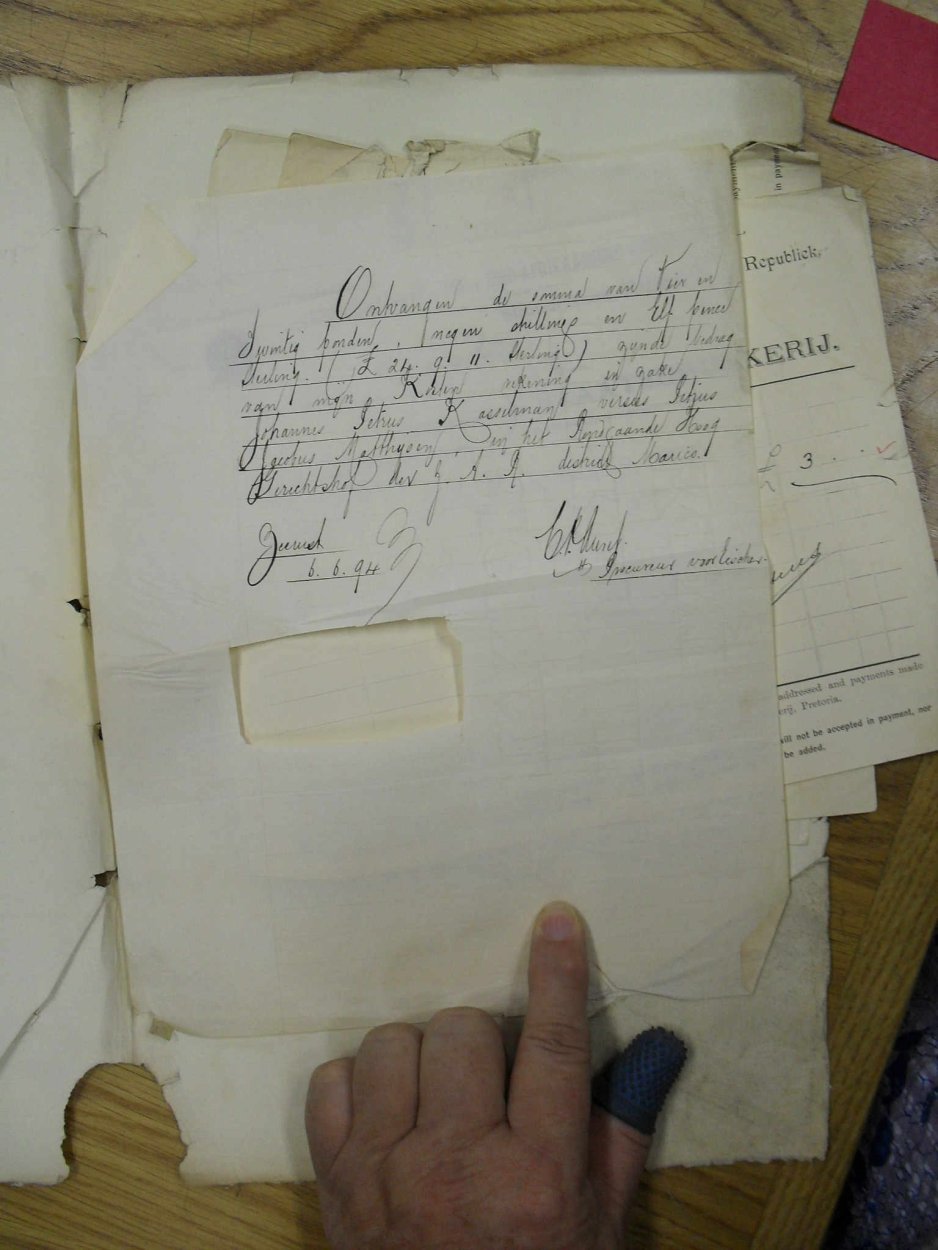 Ontvangen de somma van Vier en
Twintig ponden, negen shillings en Elf pence
Sterling. (£ 24. 9. 11. Sterling) zijnde bedrag
van mijn Kosten rekening in zake
Johannes Petrus Kasselman versus Petrus
Jacobus Matthysen, in het Rondgaande Hoog
Gerechtshof der Z. A. R. district Marico.
Zeerust
6. 6. 94
Procureur voor Eischer.
in paym
Republick,
KERIJ.
£ 3
addressed and payments made
erij, Pretoria.
will not be accepted in payment, nor
be added.